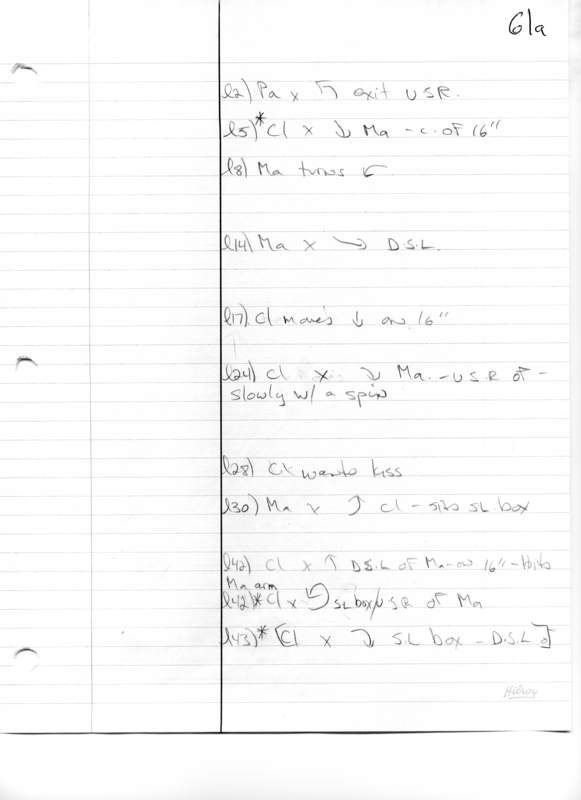 61a
l2) Pa x ↰ exit USR.
l5)* Cl x ↓ Ma - c. of 16"
l8) Ma turns ↙
l14) Ma x ↘ D.S.L.
l17) Cl moves ↓ on 16"
l24) Cl x ↓ Ma. - U.S.R of -
slowly w/ a spin
l28) Cl wants kiss
l30) Ma x ↑ Cl - sits SL box
l42) Cl x ↑ D.S.L of Ma - on 16" - Hits
Ma arm
l42)* Cl x SL box/USR of Ma
l43)* [Cl x ↓ S.L box - D.S.L. of]
Hilroy